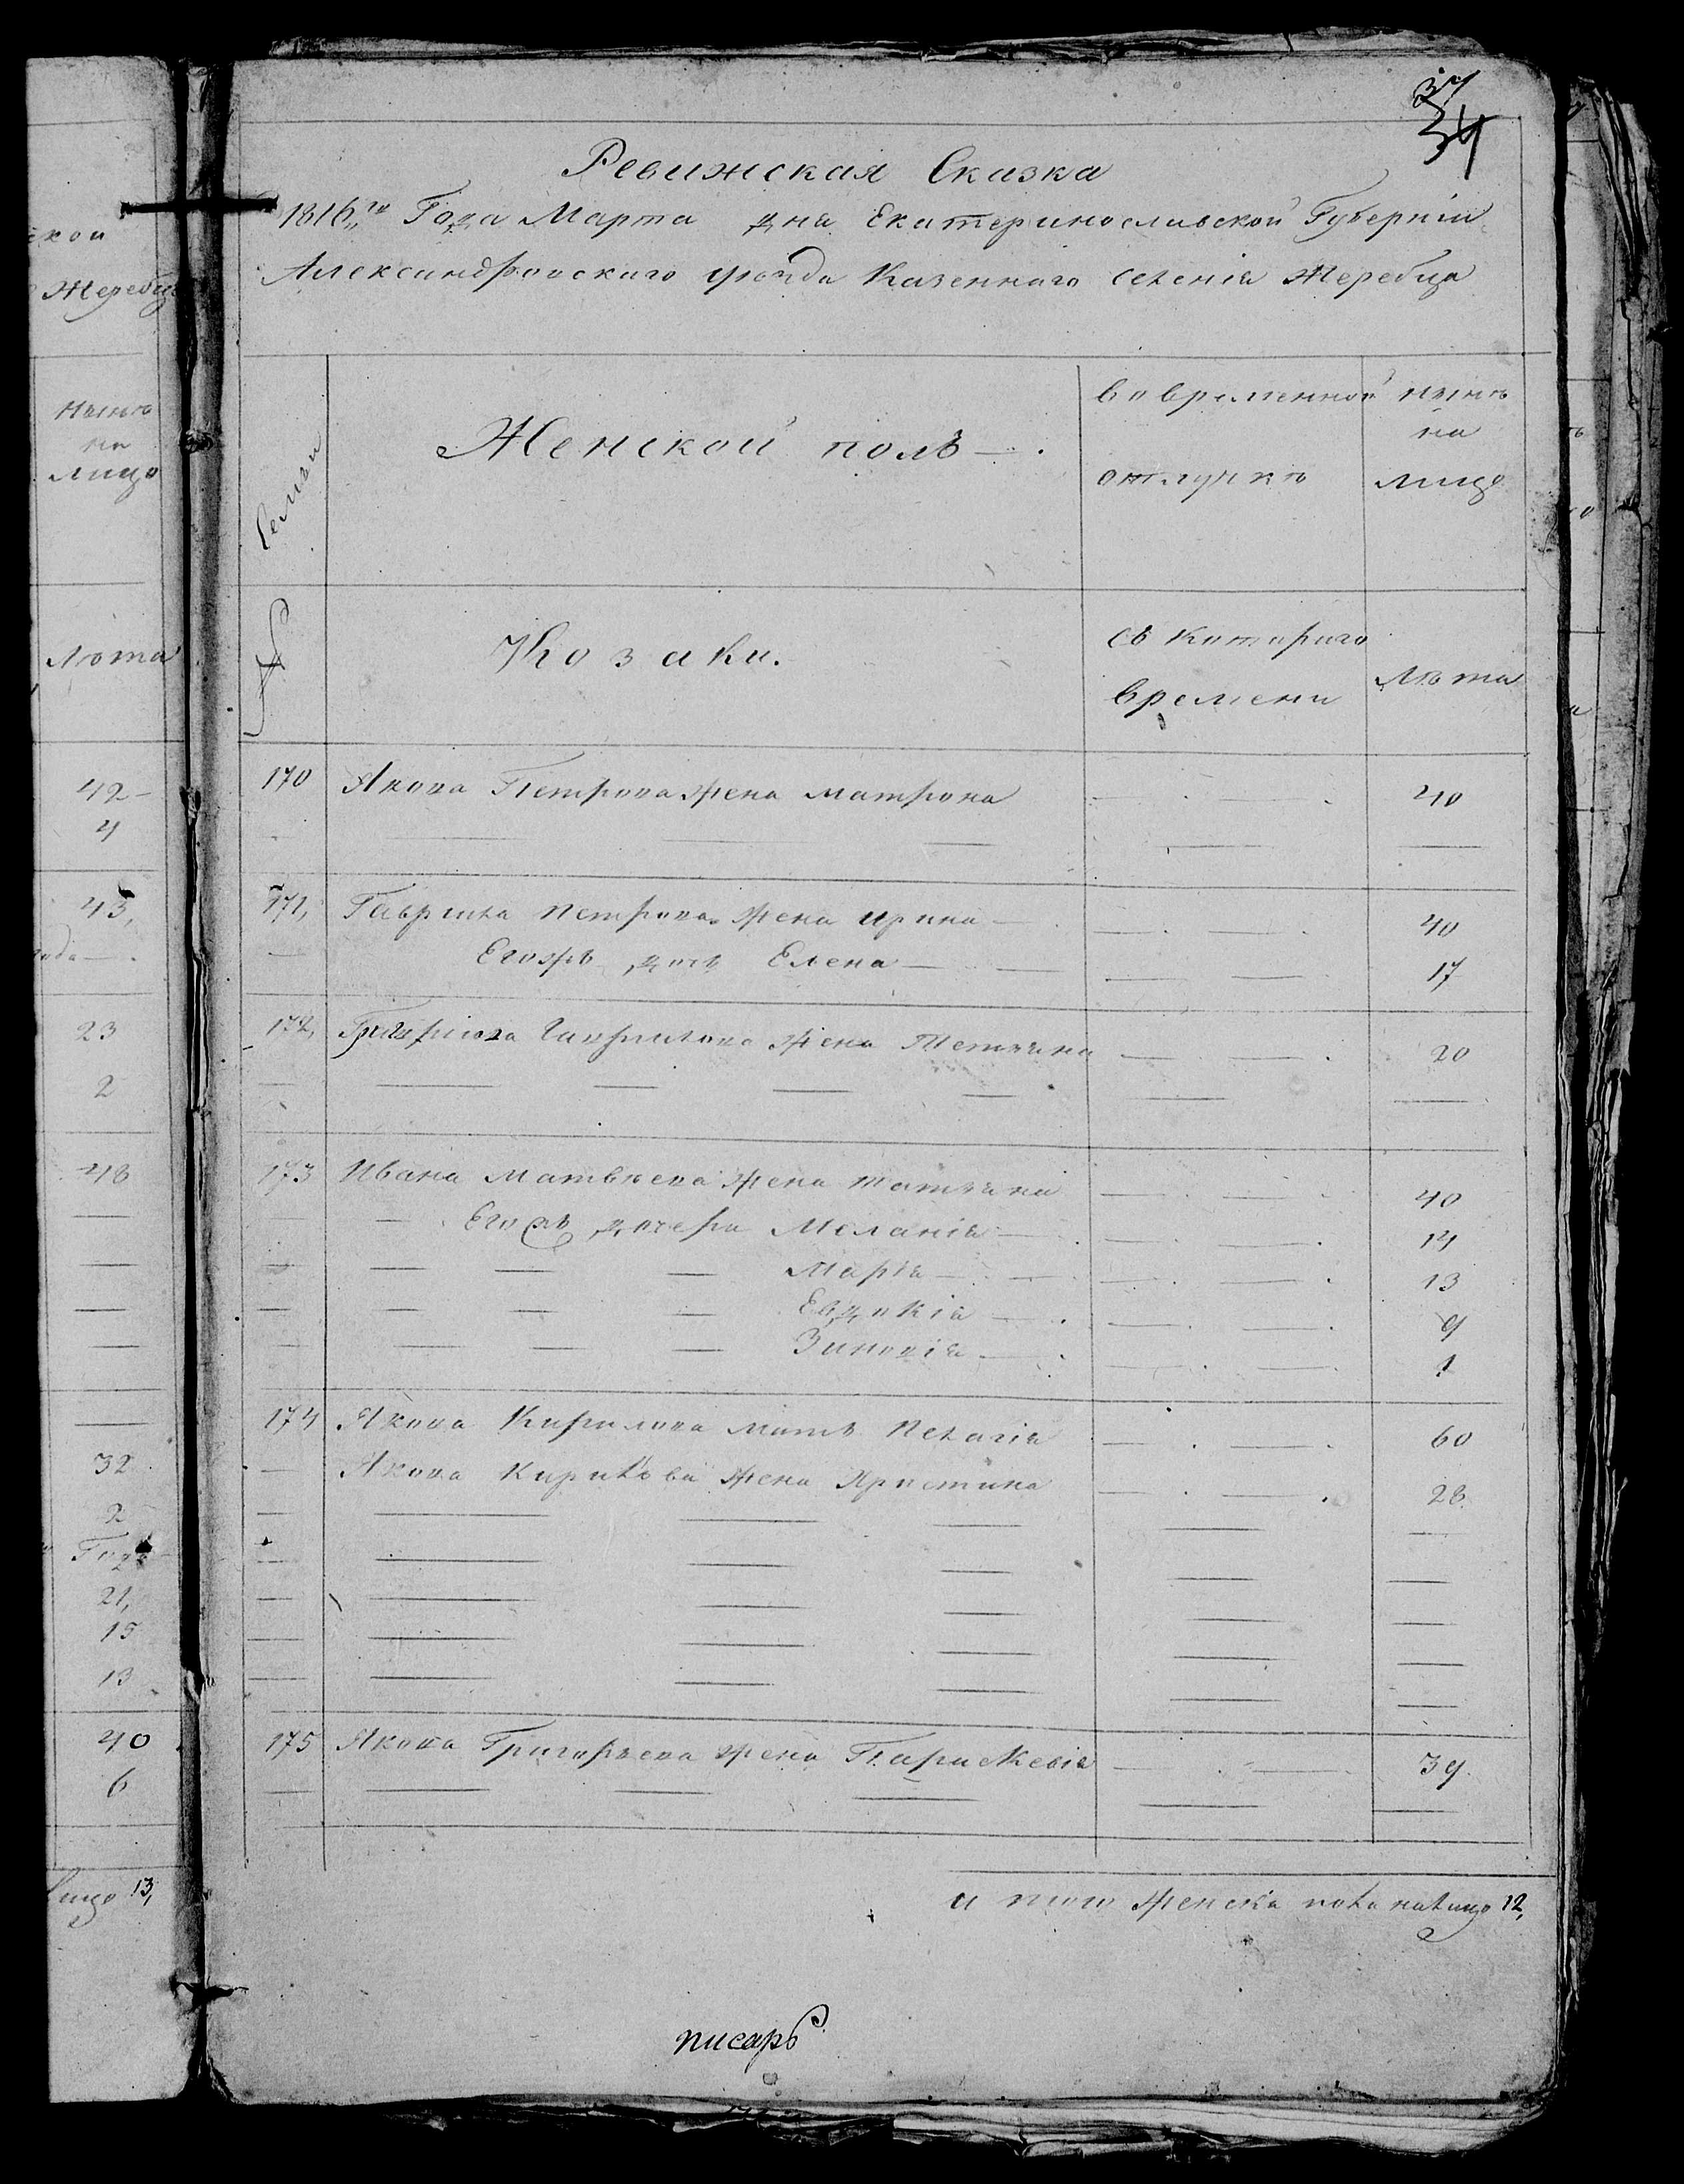 37
34
Ревижская Сказка
1816,, го Года Марта дня Екатеринославской Губерніи
Александровского уезда Казенного селенія Жеребца
Семьи
Женской полъ
во временной
отлучкѣ
нынѣ
на
лицо
№
Козаки.
съ которого
времени
Лѣта
170 Якова Петрова жена Матрона 40
171, Гаврила Петрова жена Ирина 40
Егожъ дочь Елена 17
172, Гаврилова жена Тетяна 20
173 Ивана Матвѣева жена Татяна 40
Егожъ дочери Меланія 14
Марѣя 13
Евдокія 9
Зиновія 1
174 Якова Кирилова мать Пелагія 60
Якова Кирилова жена Христина 28
175 Якова Григорьева жена Параскевія 39
и того женска пола налицо 12,
писарь
кой
Жеребца
Нынѣ
на
лицо
Лѣта
42
4
43,
года
23
2
48
32
2
Года
21,
15
13
40
6
лицо 13,